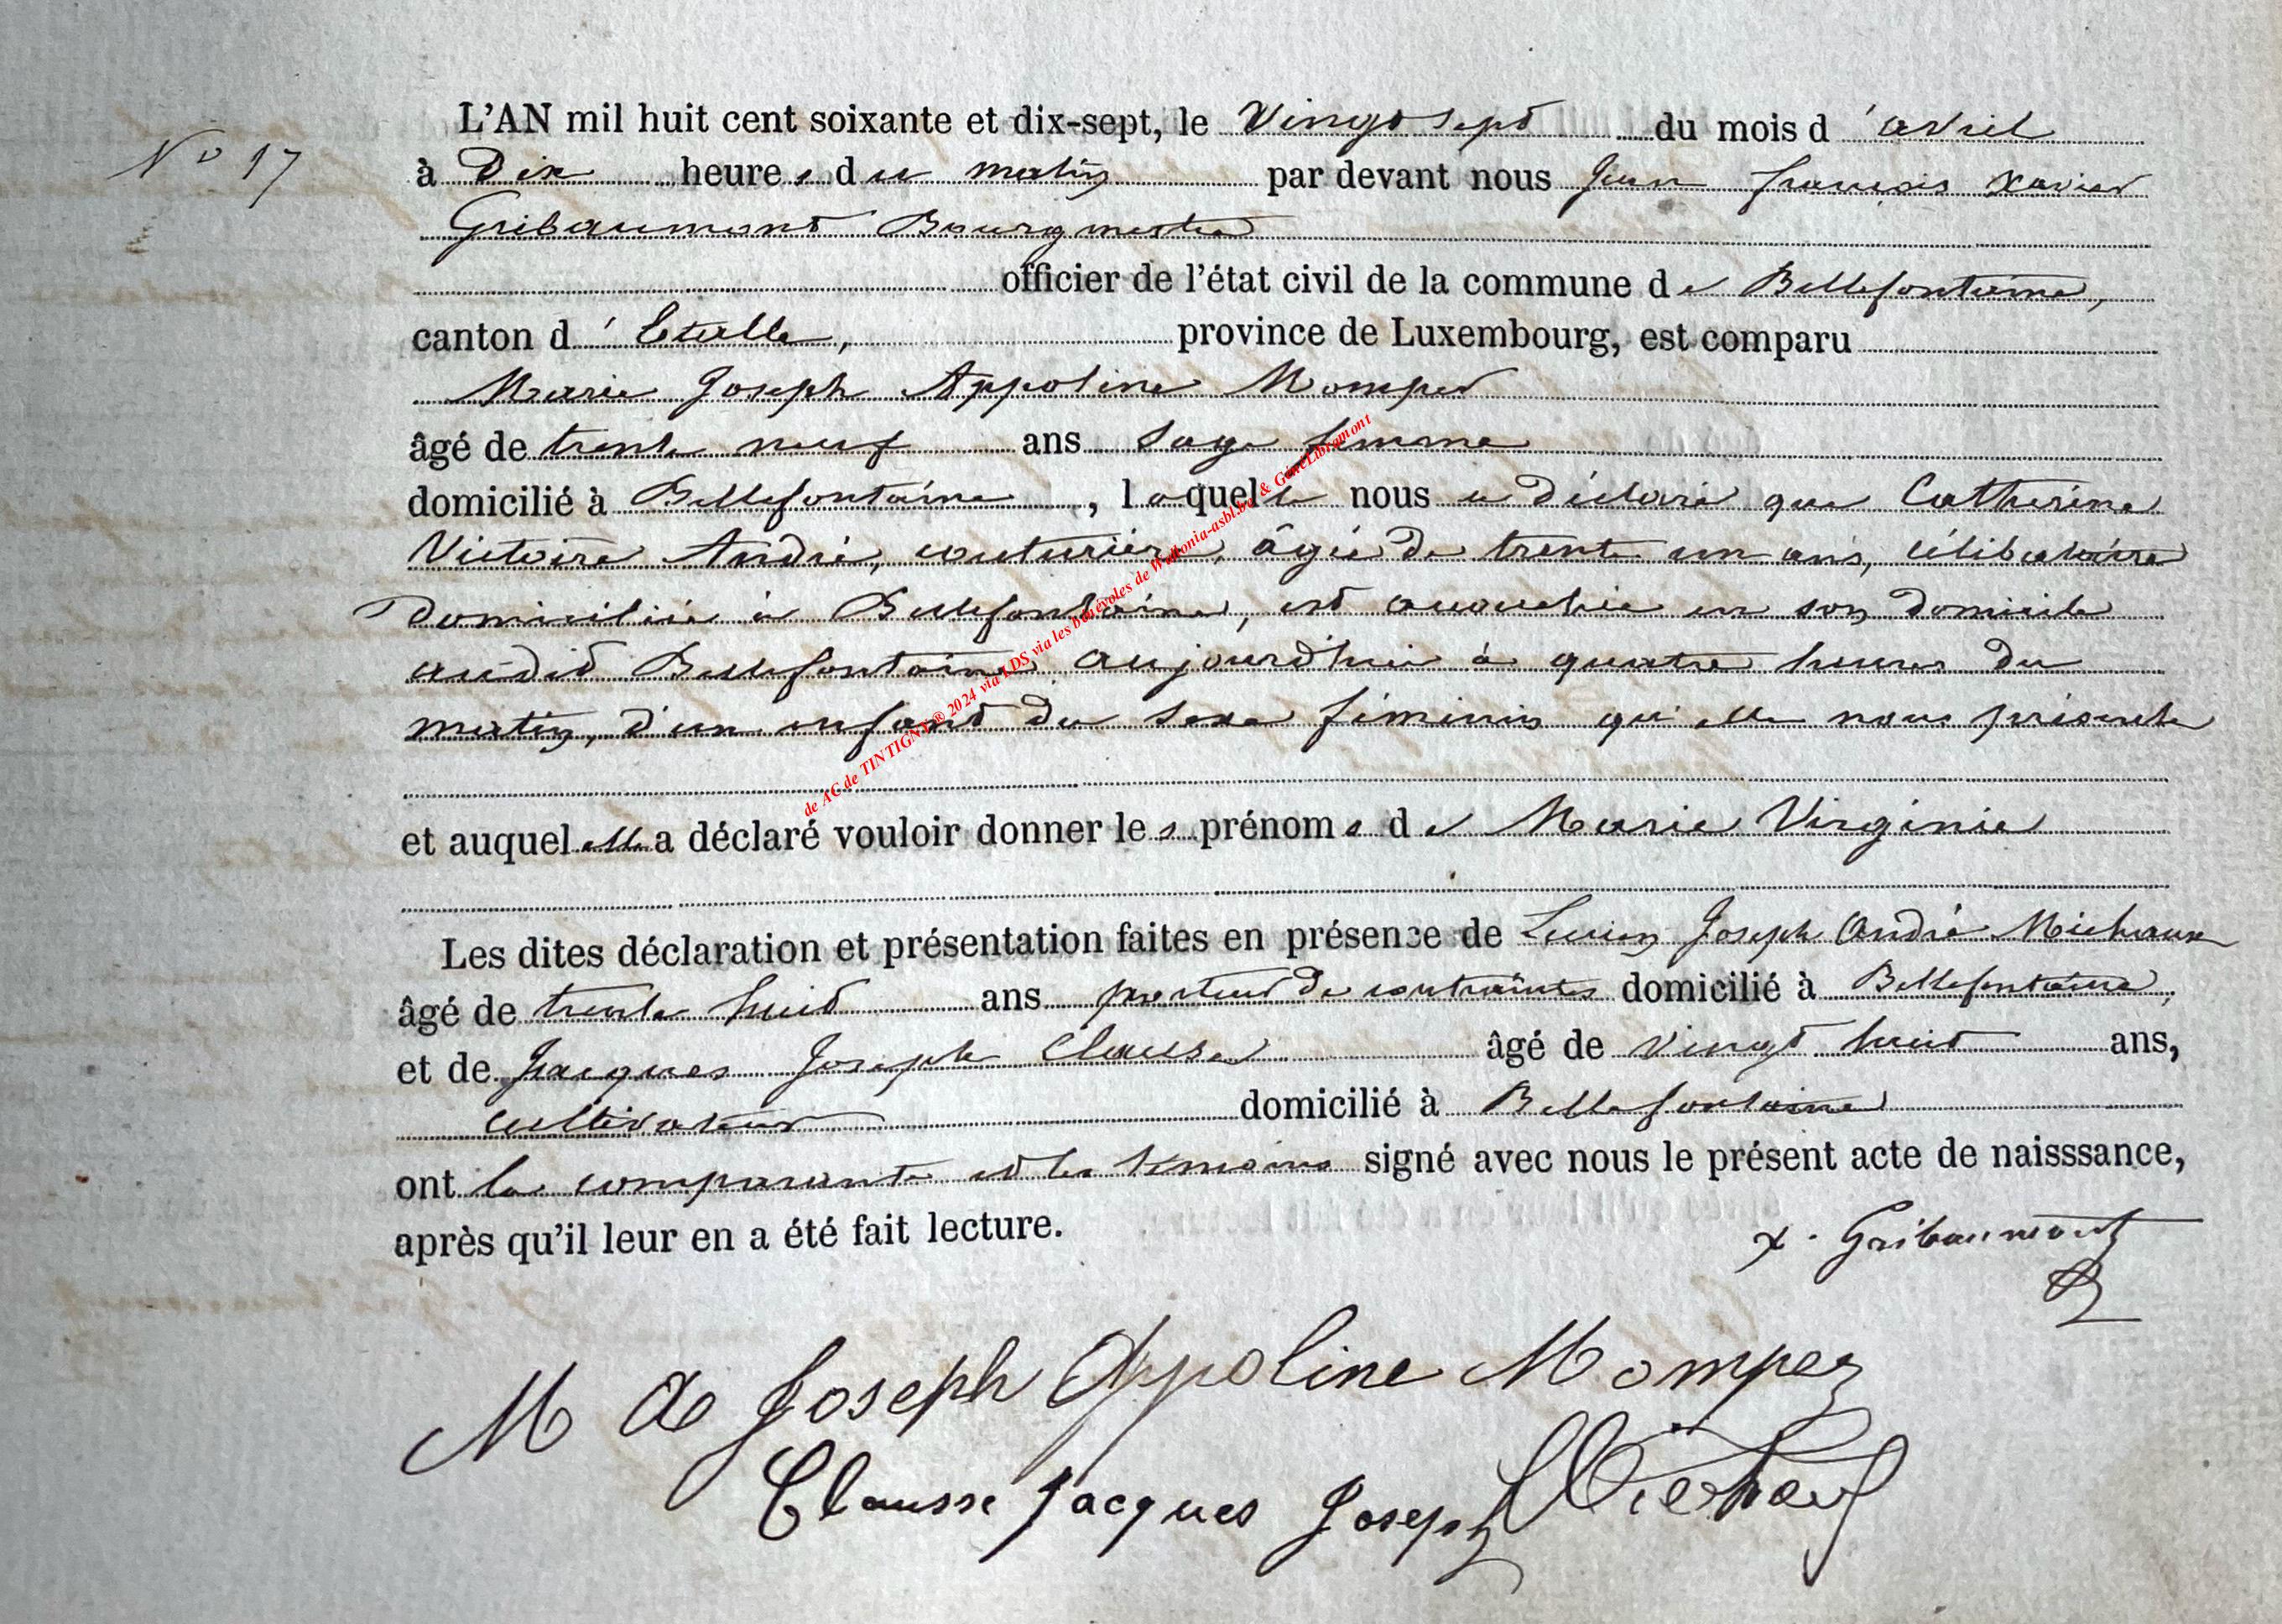 N° 17
L'AN mil huit cent soixante et dix-sept, le Vingt sept du mois d'avril
à Dix heures du matin par devant nous Jean françois Xavier
Gribaumont Bourgmestre
officier de l'état civil de la commune de Bellefontaine,
canton d'Etalle, province de Luxembourg, est comparu
Marie Joseph Appoline Momper
âgé de trente neuf ans sage femme
domicilié à Bellefontaine, laquelle nous a déclaré que Catherine
Victoire André, couturière, âgée de trente un ans, célibataire
domiciliée à Bellefontaine, est accouchée en son domicile
audit Bellefontaine aujourd'hui à quatre heures du
matin, d'un enfant du sexe féminin qu'elle nous présente
et auquel elle a déclaré vouloir donner les prénoms de Marie Virginie
Les dites déclaration et présentation faites en présence de Lucien Joseph André Michaux
âgé de trente huit ans porteur de contraintes domicilié à Bellefontaine,
et de Jacques Joseph Clausse âgé de vingt huit ans,
cultivateur domicilié à Bellefontaine
ont la comparante et les témoins signé avec nous le présent acte de naisssance,
après qu'il leur en a été fait lecture.
X. Gribaumont
M Joseph Appoline Momper
Clausse Jacques Joseph
de AC de TINTIGNY ® 2024 via LDS via les bénévoles de Wallonia-asbl.be & GénéLibramont